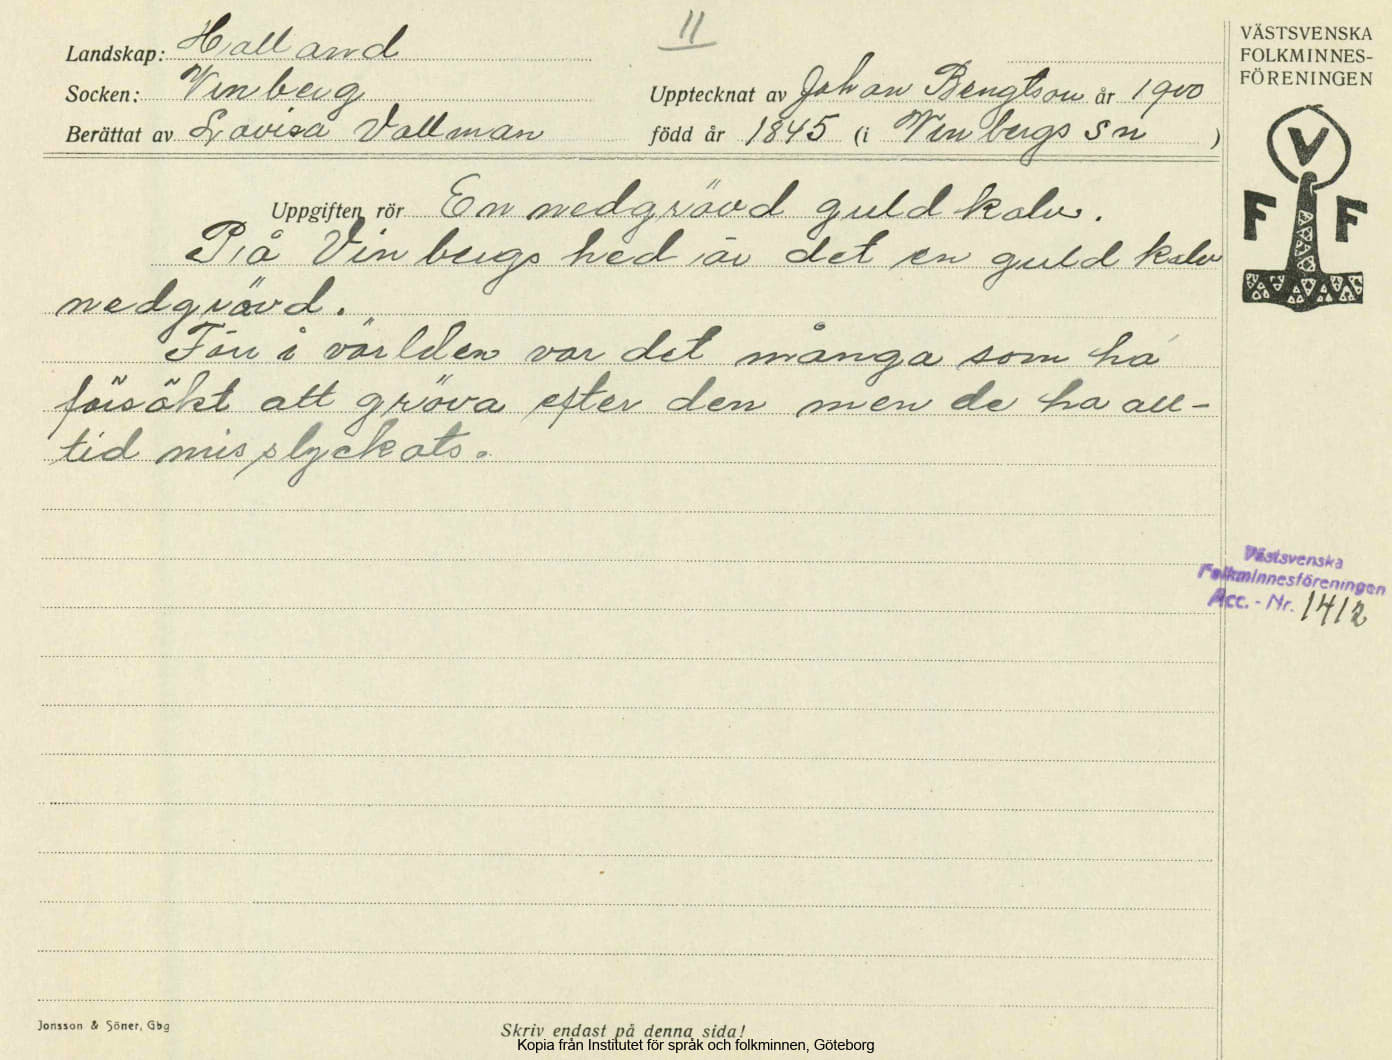 11
Landskap: Halland
Socken: Vinberg
Upptecknat av Johan Bengtson år 1900
Berättat av Lovisa Vallman
född år 1845 (i Vinbergs sn )
VÄSTSVENSKA
FOLKMINNES-
FÖRENINGEN
V
F F
Uppgiften rör En nedgrävd guldkalv.
På Vinbergs hed är det en guldkalv
nedgrävd.
Förr i världen var det många som ha
försökt att gräva efter den men de ha all-
tid misslyckats.
Västsvenska
Folkminnesföreningen
Acc. - Nr. 1412
Jonsson & Söner, Gbg
Skriv endast på denna sida!
Kopia från Institutet för språk och folkminnen, Göteborg